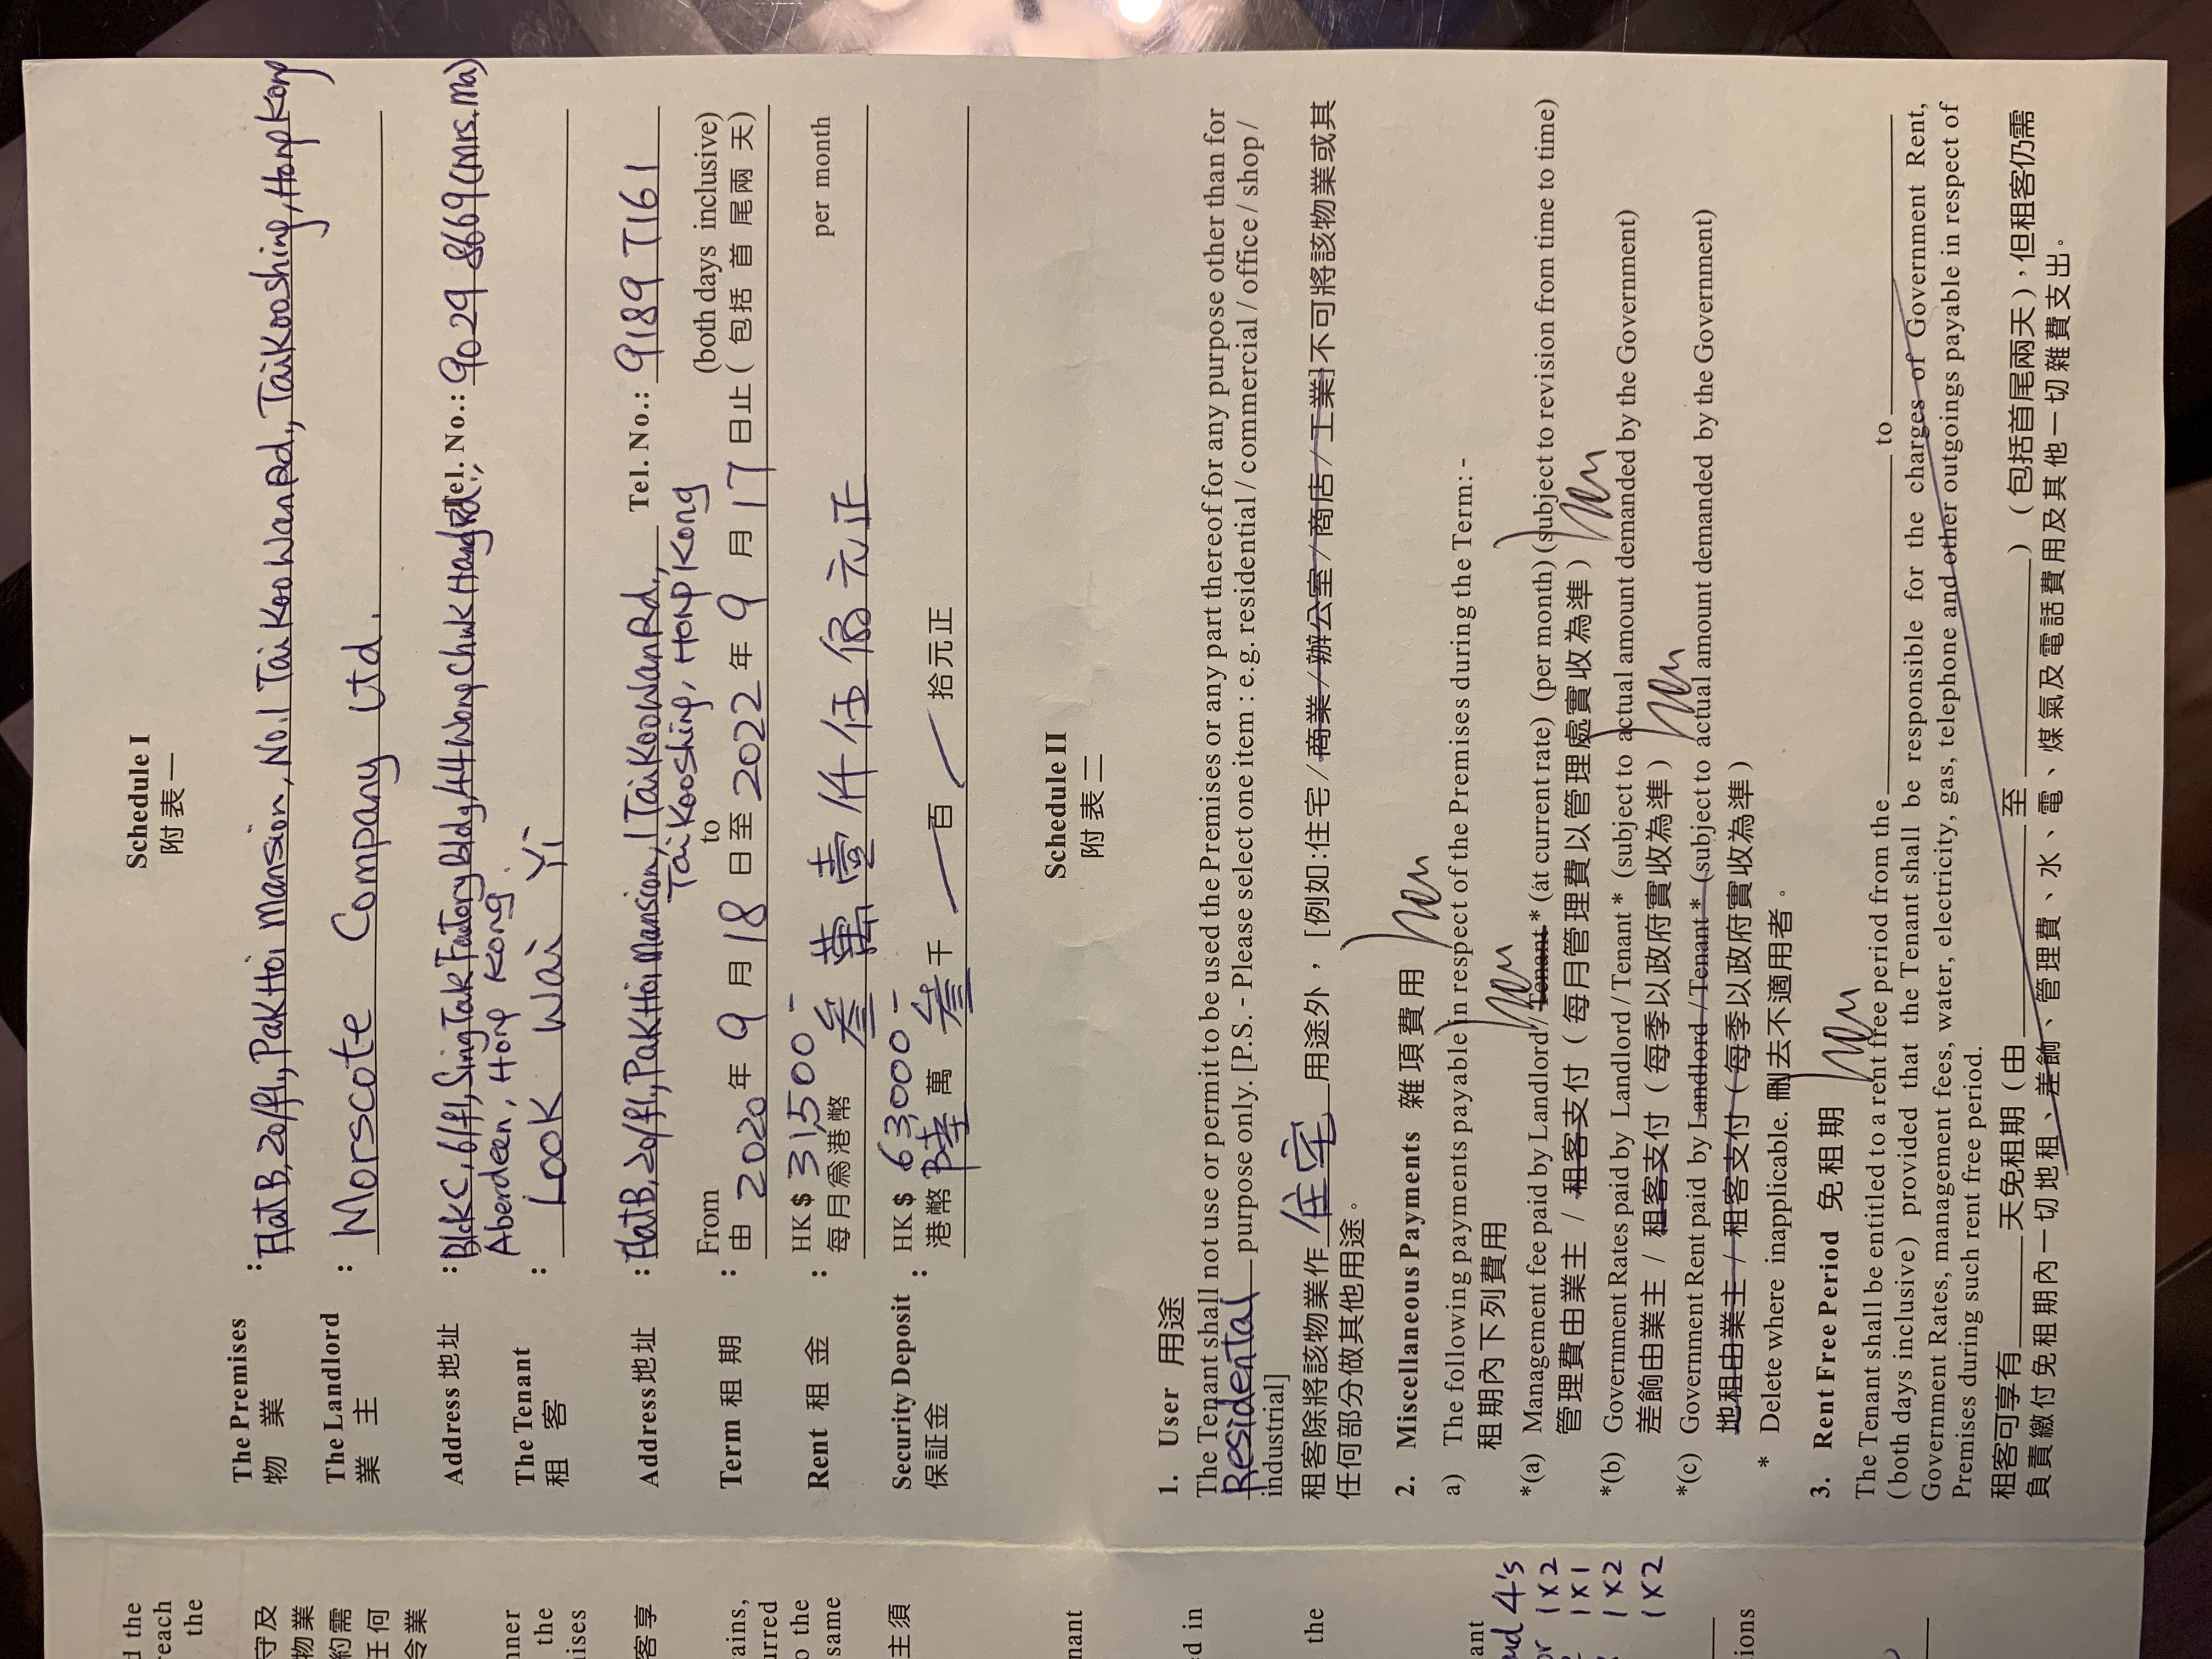 Schedule I
附表一
The Premises : Flat B, 20/fl., Pak Hoi Mansion, No.1 Tai Koo Wan Rd., Taikooshing, Hong Kong
物業
The Landlord : Morscote Company Ltd.
業主
Address 地址 : Blk C, 6/fl, Sing Tak Factory Bldg, 44 Wong Chuk Hang Rd., Tel. No.: 9029 8669 (Mrs. Ma)
Aberdeen, Hong Kong.
The Tenant : Look Wai Yi
租客
Address 地址 : Flat B, 20/fl, Pak Hoi Mansion, 1 Tai Koo Wan Rd., Tel. No.: 9189 7161
Taikooshing, Hong Kong
Term 租期 : From to (both days inclusive)
由 2020 年 9 月 18 日至 2022 年 9 月 17 日止 (包括首尾兩天)
Rent 租金 : HK$ 31,500- per month
每月為港幣 叁萬壹仟伍佰元正
Security Deposit : HK$ 63,000-
保証金 港幣 陸 萬 叁 千 百 拾元正
Schedule II
附表二
1. User 用途
The Tenant shall not use or permit to be used the Premises or any part thereof for any purpose other than for
Residental purpose only. [P.S. - Please select one item : e.g. residential / commercial / office / shop /
industrial]
租客除將該物業作 住宅 用途外，[例如:住宅/商業/辦公室/商店/工業]不可將該物業或其
任何部分做其他用途。
2. Miscellaneous Payments 雜項費用
a) The following payments payable in respect of the Premises during the Term: -
租期內下列費用
*(a) Management fee paid by Landlord / Tenant * (at current rate) (per month) (subject to revision from time to time)
管理費由業主 / 租客支付 (每月管理費以管理處實收為準)
*(b) Government Rates paid by Landlord / Tenant * (subject to actual amount demanded by the Government)
差餉由業主 / 租客支付 (每季以政府實收為準)
*(c) Government Rent paid by Landlord / Tenant * (subject to actual amount demanded by the Government)
地租由業主 / 租客支付 (每季以政府實收為準)
* Delete where inapplicable. 刪去不適用者。
3. Rent Free Period 免租期
The Tenant shall be entitled to a rent free period from the to
(both days inclusive) provided that the Tenant shall be responsible for the charges of Government Rent,
Government Rates, management fees, water, electricity, gas, telephone and other outgoings payable in respect of
Premises during such rent free period.
租客可享有 天免租期 (由 至 ) (包括首尾兩天)，但租客仍需
負責繳付免租期內一切地租、差餉、管理費、水、電、煤氣及電話費用及其他一切雜費支出。
d the
reach
the
守及
物業
約需
任何
令業
nner
the
nises
客享
ains,
urred
o the
same
主須
nant
ed in
the
ant
and 4's
or 1x2
1x1
1x2
1x2
ions